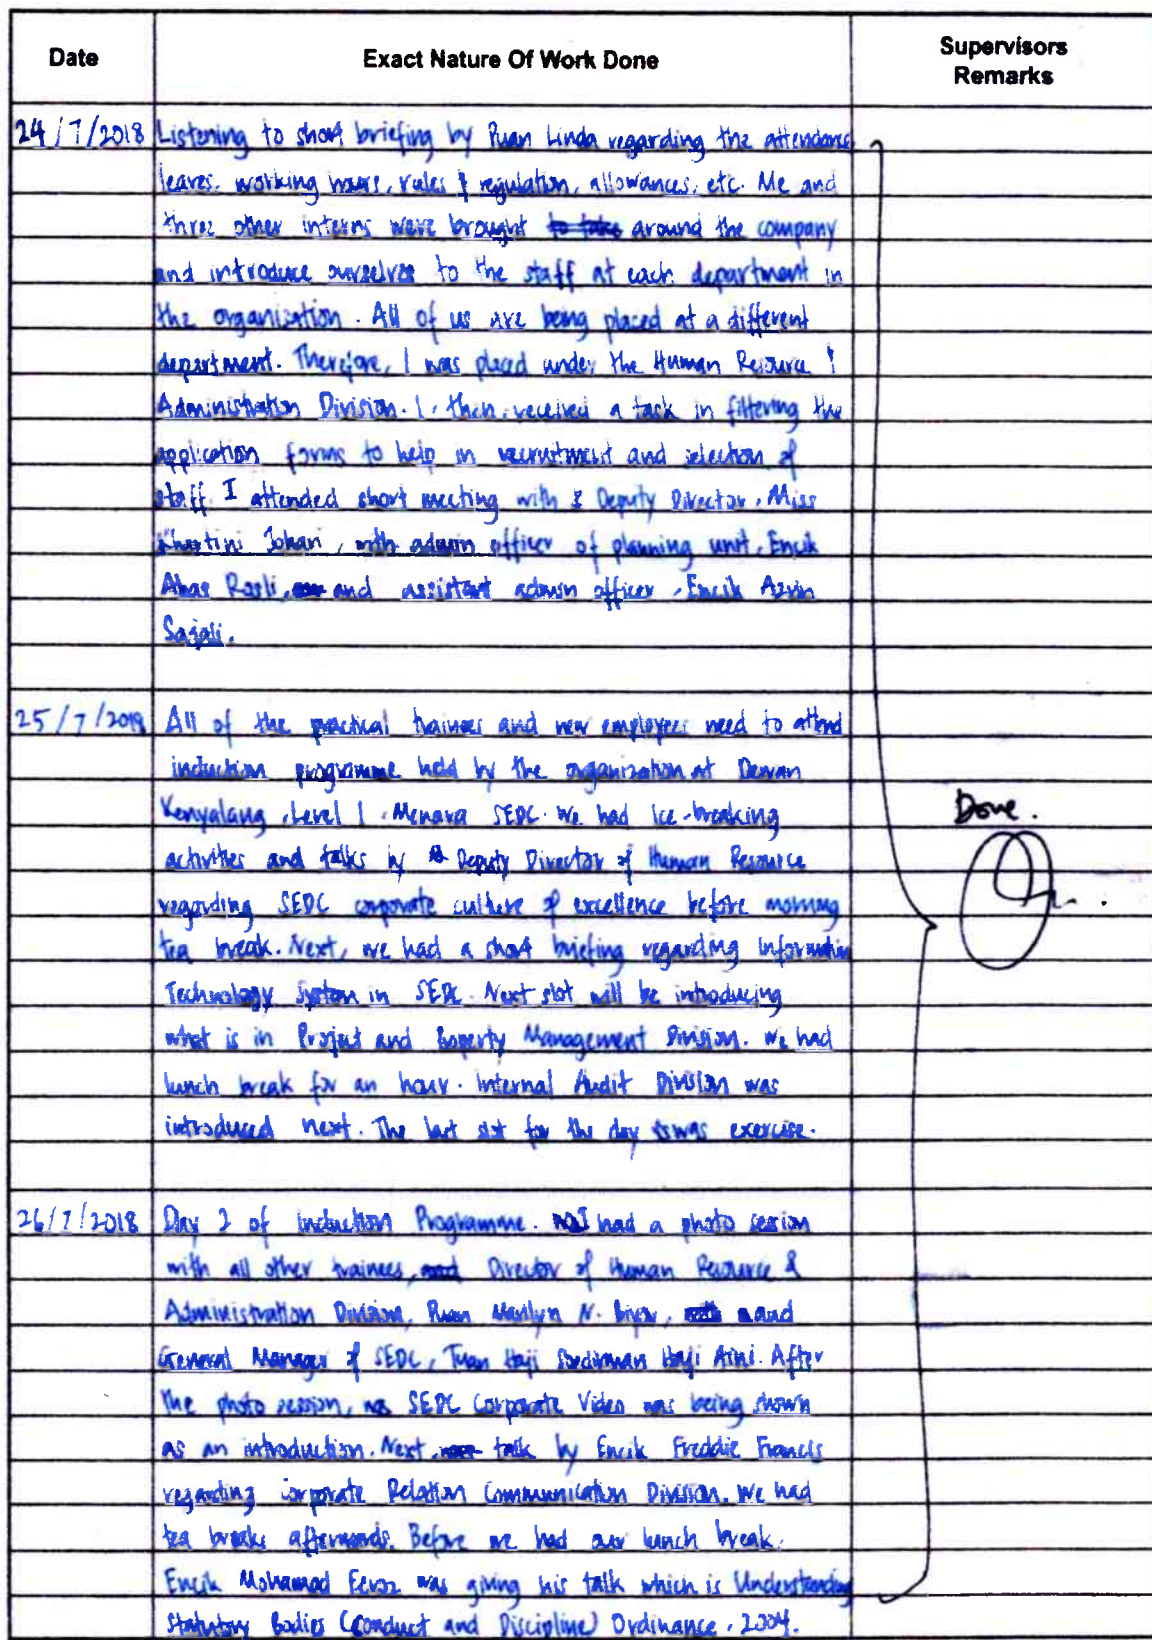 Date Exact Nature Of Work Done Supervisors Remarks
24/7/2018 Listening to short briefing by Puan Linda regarding the attendance
leaves, working hours, rules & regulation, allowances, etc. Me and
three other interns were brought around the company
and introduce ourselves to the staff at each department in
the organization. All of us are being placed at a different
department. Therefore, I was placed under the Human Resource &
Administration Division. I then received a task in filtering the
application forms to help in recruitment and selection of
staff. I attended short meeting with Deputy Director, Miss
Johari, with admin officer of planning unit, Encik
Rosli, and assistant admin officer, Encik Azrin
Sajali.
25/7/2018 All of the practical trainees and new employees need to attend
induction programme held by the organization at Dewan
Kenyalang, Level 1, Menara SEDC. We had Ice-breaking
Done.
activities and talks by Deputy Director of Human Resource
regarding SEDC corporate culture of excellence before morning
tea break. Next, we had a short briefing regarding Information
Technology System in SEDC. Next slot will be introducing
what is in Project and Property Management Division. We had
lunch break for an hour. Internal Audit Division was
introduced next. The last slot for the day was exercise.
26/7/2018 Day 2 of Induction Programme. I had a photo session
with all other trainees, Director of Human Resource &
Administration Division, Puan Marilyn N. and
General Manager of SEDC, Tuan Haji Haji Aini. After
the photo session, SEDC Corporate Video was being shown
as an introduction. Next, talk by Encik Freddie Francis
regarding corporate Relation Communication Division. We had
tea breaks afterwards. Before we had our lunch break,
Encik Mohamad was giving his talk which is Understanding
Statutory Bodies (Conduct and Discipline) Ordinance, 2004.